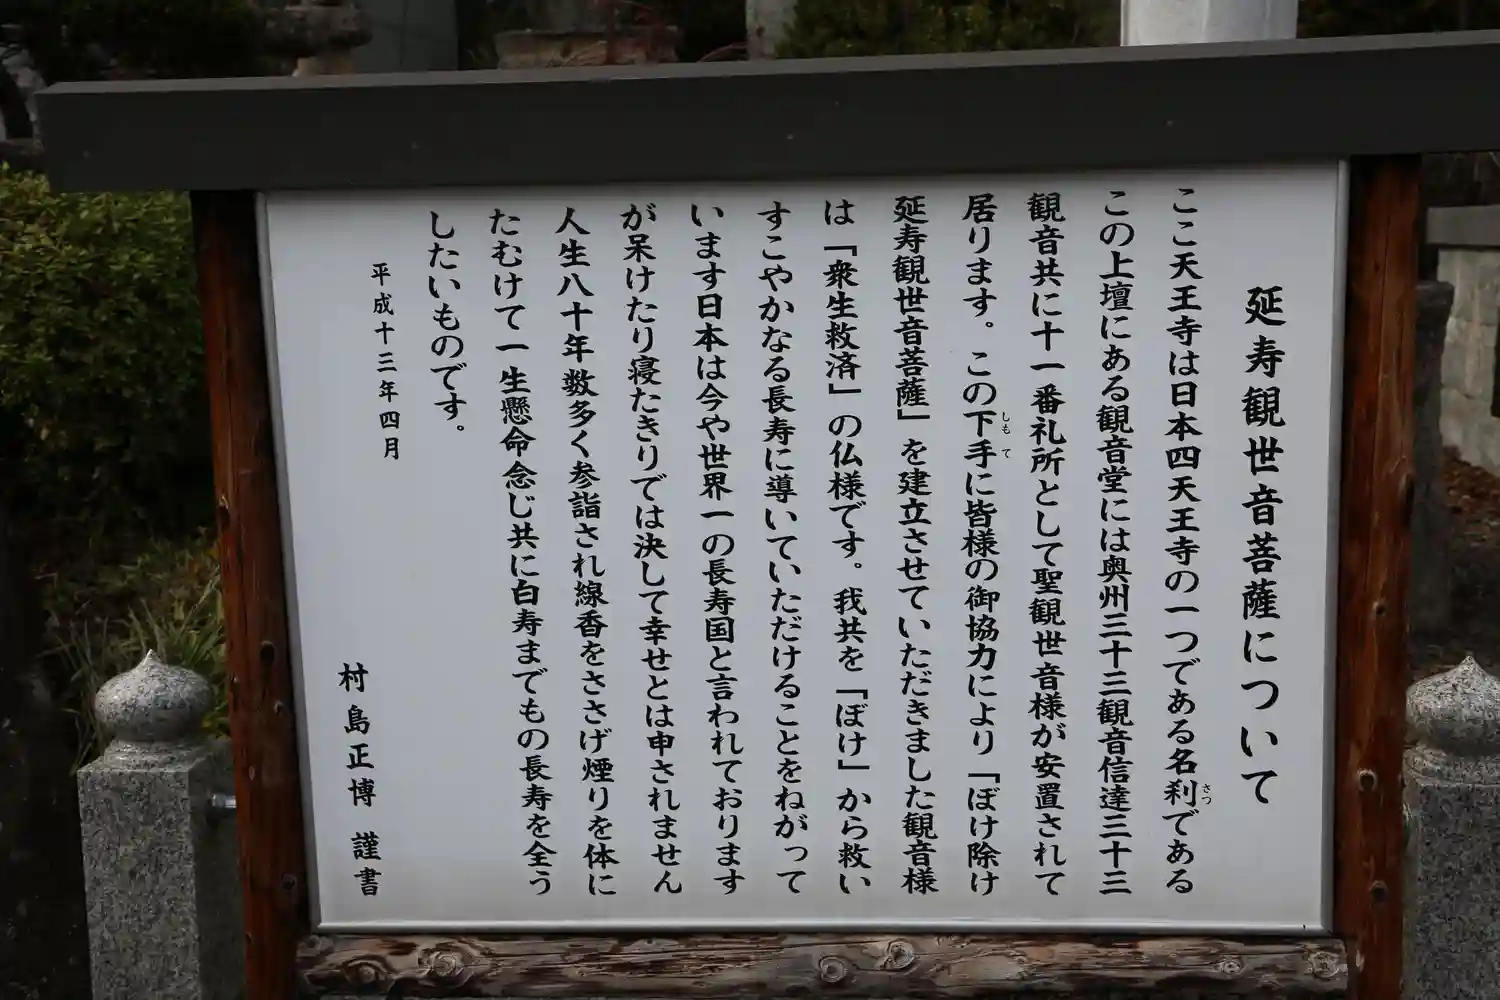 延寿観世音菩薩について
ここ天王寺は日本四天王寺の一つである名刹である
この上壇にある観音堂には奥州三十三観音信達三十三
観音共に十一番礼所として聖観世音様が安置されて
居ります。この下手に皆様の御協力により「ぼけ除け
延寿観世音菩薩」を建立させていただきました観音様
は「衆生救済」の仏様です。我共を「ぼけ」から救い
すこやかなる長寿に導いていただけることをねがって
います日本は今や世界一の長寿国と言われております
が呆けたり寝たきりでは決して幸せとは申されません
人生八十年数多く参詣され線香をささげ煙りを体に
たむけて一生懸命念じ共に白寿までもの長寿を全う
したいものです。
平成十三年四月
村島正博 謹書